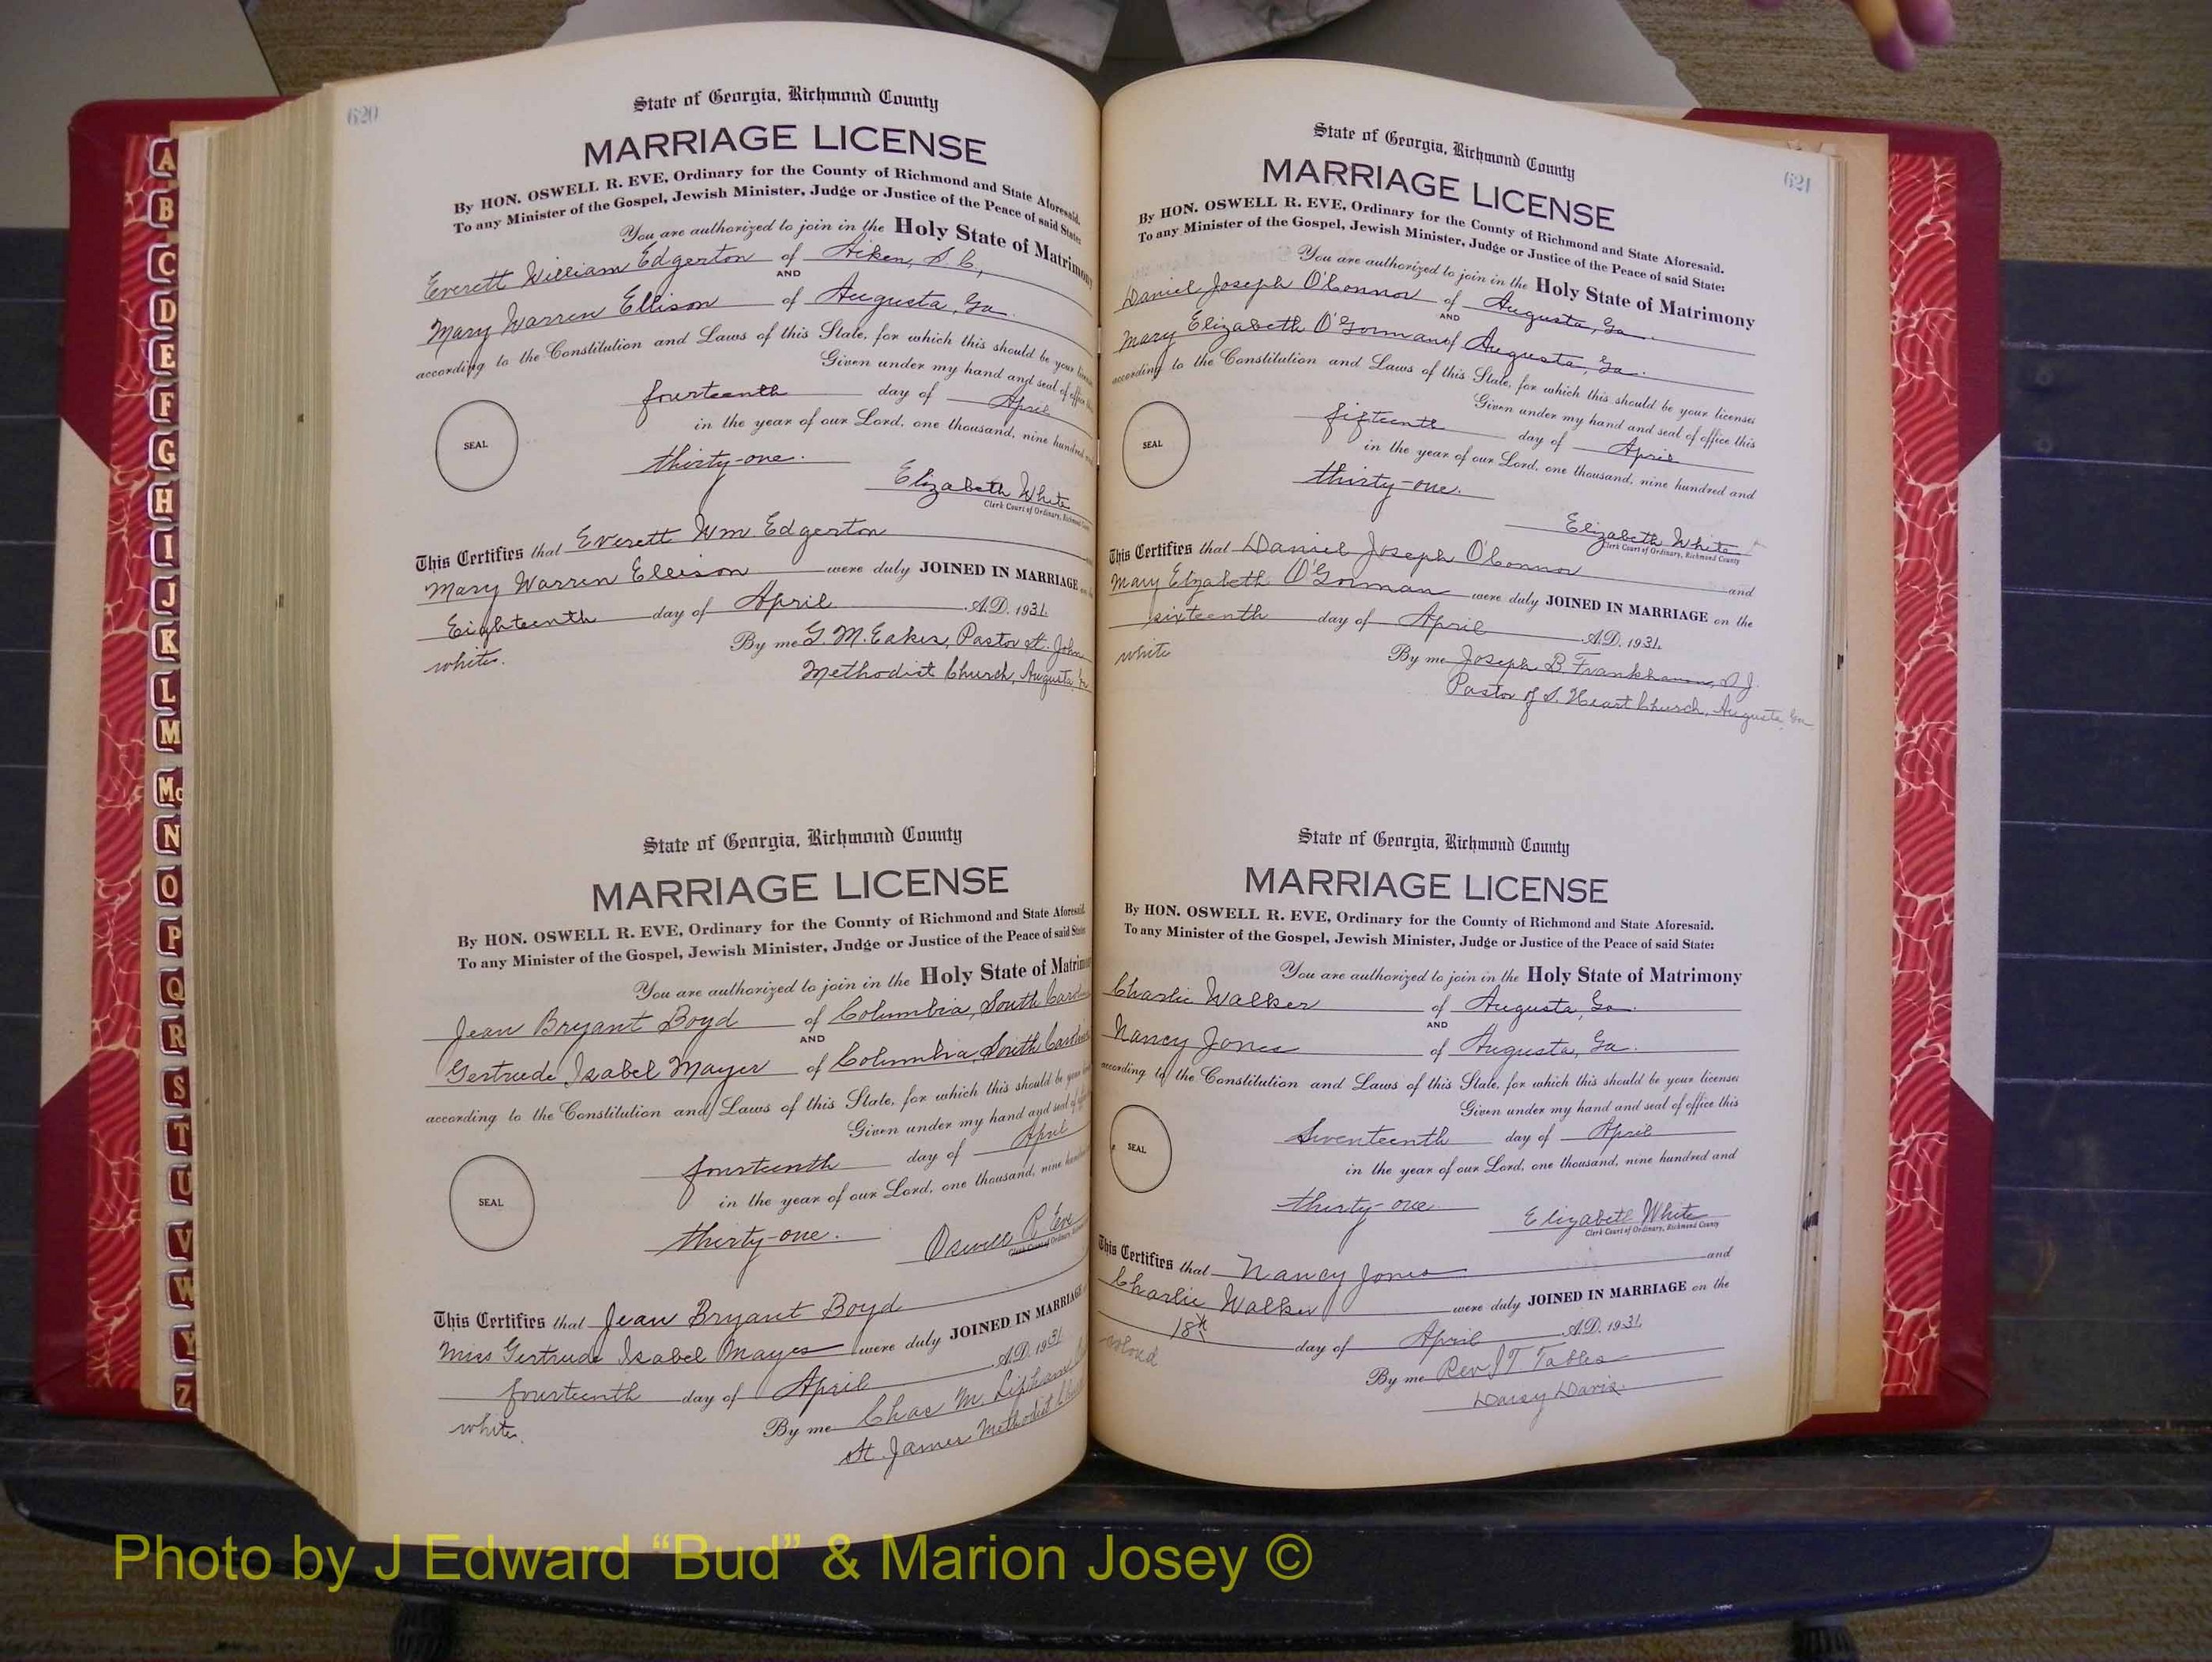 620
State of Georgia, Richmond County
MARRIAGE LICENSE
By HON. OSWELL R. EVE, Ordinary for the County of Richmond and State Aforesaid.
To any Minister of the Gospel, Jewish Minister, Judge or Justice of the Peace of said State:
You are authorized to join in the Holy State of Matrimony
Everett William Edgerton of Aiken, S. C.,
AND
Mary Warren Ellison of Augusta, Ga.
according to the Constitution and Laws of this State, for which this should be your
Given under my hand and seal of office
fourteenth day of April
in the year of our Lord, one thousand, nine hundred
thirty-one.
SEAL
Elizabeth White
Clerk Court of Ordinary, Richmond
This Certifies that Everett Wm Edgerton
Mary Warren Ellison were duly JOINED IN MARRIAGE
Eighteenth day of April A.D. 1931.
white. By me G. M. Eakes, Pastor St. John
Methodist Church, Augusta
State of Georgia, Richmond County
MARRIAGE LICENSE
By HON. OSWELL R. EVE, Ordinary for the County of Richmond and State Aforesaid.
To any Minister of the Gospel, Jewish Minister, Judge or Justice of the Peace of said State
You are authorized to join in the Holy State of Matrimo
Jean Bryant Boyd of Columbia, South
AND
Gertrude Isabel Mayer of Columbia, South
according to the Constitution and Laws of this State, for which this should be
Given under my hand and seal of
fourteenth day of April
in the year of our Lord, one thousand, nine
thirty-one.
SEAL
Oswell R. Eve
Clerk Court of Ordinary,
This Certifies that Jean Bryant Boyd
Miss Gertrude Isabel Mayes were duly JOINED IN MARRIAGE
fourteenth day of April A.D. 1931
white. By me Chas M.
St. James Methodist
621
State of Georgia, Richmond County
MARRIAGE LICENSE
By HON. OSWELL R. EVE, Ordinary for the County of Richmond and State Aforesaid.
To any Minister of the Gospel, Jewish Minister, Judge or Justice of the Peace of said State:
You are authorized to join in the Holy State of Matrimony
Daniel Joseph O'Connor of Augusta, Ga.
AND
Mary Elizabeth O'Gorman of Augusta, Ga.
according to the Constitution and Laws of this State, for which this should be your licenses
Given under my hand and seal of office this
fifteenth day of April
in the year of our Lord, one thousand, nine hundred and
thirty-one.
SEAL
Elizabeth White
Clerk Court of Ordinary, Richmond County
This Certifies that Daniel Joseph O'Connor and
Mary Elzabeth O'Gorman were duly JOINED IN MARRIAGE on the
sixteenth day of April A.D. 1931.
white By me Joseph B. S.J.
Pastor of S. Heart Church, Augusta, Ga
State of Georgia, Richmond County
MARRIAGE LICENSE
By HON. OSWELL R. EVE, Ordinary for the County of Richmond and State Aforesaid.
To any Minister of the Gospel, Jewish Minister, Judge or Justice of the Peace of said State:
You are authorized to join in the Holy State of Matrimony
Charlie Walker of Augusta, Ga.
AND
Nancy Jones of Augusta, Ga.
according to the Constitution and Laws of this State, for which this should be your licenses
Given under my hand and seal of office this
Seventeenth day of April
in the year of our Lord, one thousand, nine hundred and
thirty-one
SEAL
Elizabeth White
Clerk Court of Ordinary, Richmond County
This Certifies that Nancy Jones and
Charlie Walker were duly JOINED IN MARRIAGE on the
18th day of April A.D. 1931.
By me Rev
Daisy Davis.
A
B
C
D
E
F
G
H
I
J
K
L
M
Mc
N
O
P
Q
R
S
T
U
V
W
Y
Z
Photo by J Edward “Bud” & Marion Josey ©